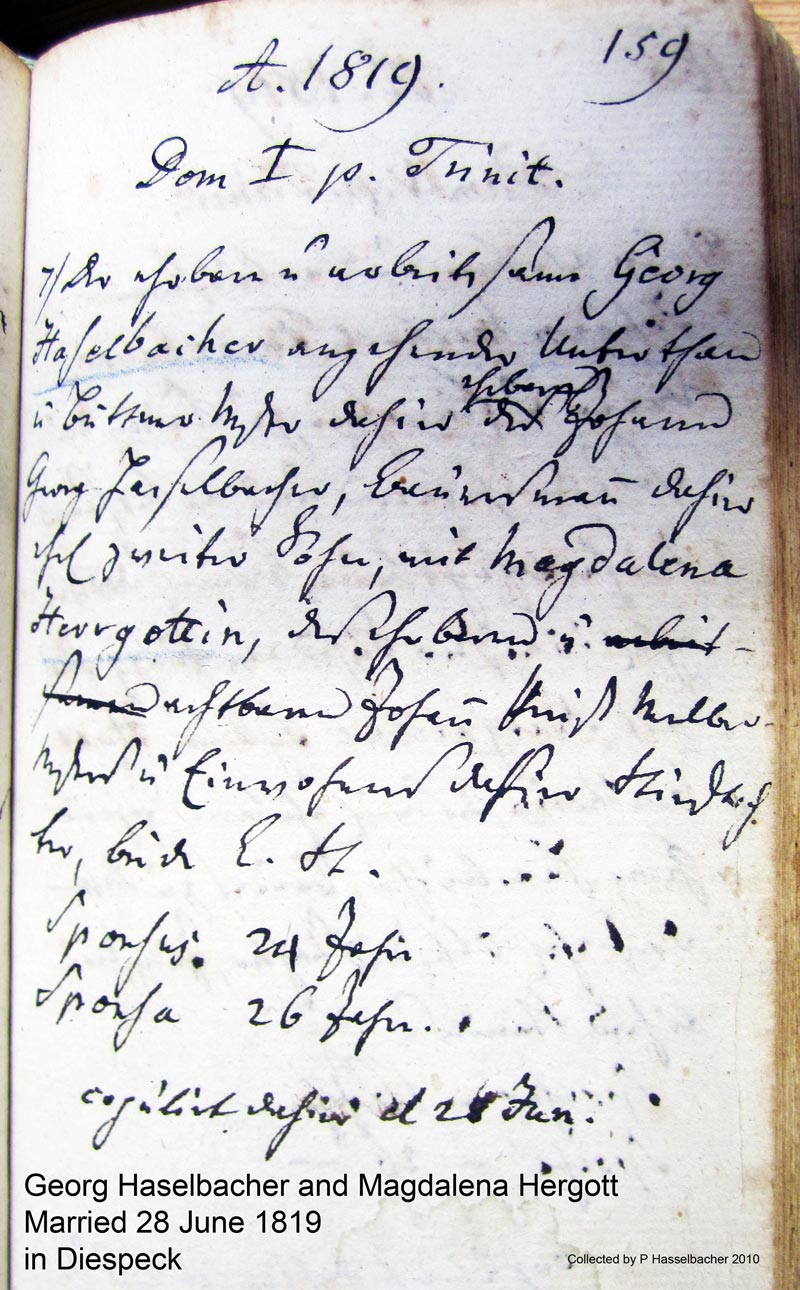 A. 1819. 159
Dom I p. Trinit.
7) Der ehrbare u arbeitsame Georg
Haselbacher angehender Unterthan
u Büttner Mstr dahier des ehrbaren Johann
Georg Haselbacher, Bauersmañ dahier
ehel zweiter Sohn, mit Magdalena
Herrgottin, des ehrbaren u. arbeit-
samen achtbaren Johañ Melber-
Mstrs u Einwohners dahier
ter, beide L. St.
Sponsus. 24 Jahr
Sponsa 26 Jahr.
copulirt dahier d 28 Jun.
Georg Haselbacher and Magdalena Hergott
Married 28 June 1819
in Diespeck
Collected by P Hasselbacher 2010